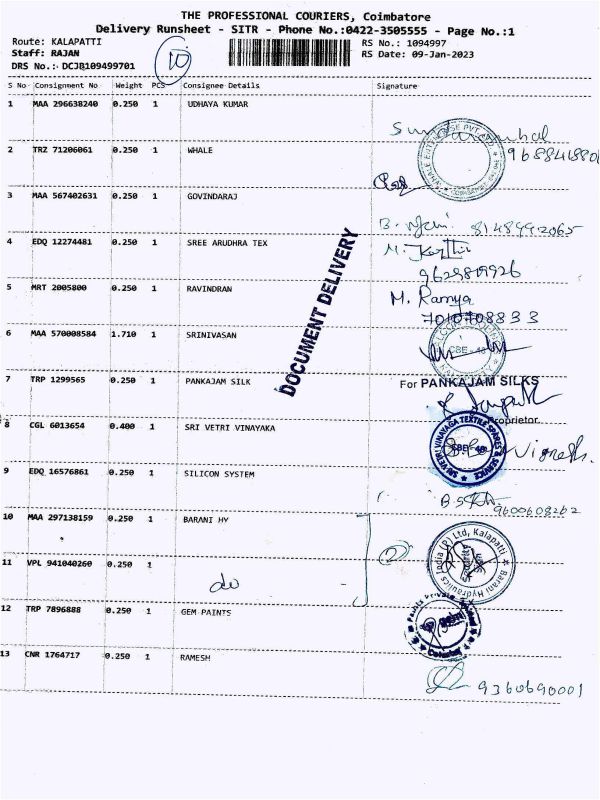 THE PROFESSIONAL COURIERS, Coimbatore
Delivery Runsheet - SITR - Phone No.:0422-3505555 - Page No.:1
Route: KALAPATTI
RS No.: 1094997
Staff: RAJAN
10
RS Date: 09-Jan-2023
DRS No.: DCJB109499701
S No Consignment No Weight PCS Consignee Details Signature
1 MAA 296638240 0.250 1 UDHAYA KUMAR
2 TRZ 71206061 0.250 1 WHALE
3 MAA 567402631 0.250 1 GOVINDARAJ
B. 8148992065
4 EDQ 12274481 0.250 1 SREE ARUDHRA TEX
M.
5 MRT 2005800 0.250 1 RAVINDRAN
M. Ramya
7010708833
DOCUMENT DELIVERY
6 MAA 570008584 1.710 1 SRINIVASAN
CBE - 48
7 TRP 1299565 0.250 1 PANKAJAM SILK
For PANKAJAM SILKS
Proprietor.
8 CGL 6013654 0.400 1 SRI VETRI VINAYAKA
SRI VETRI VINAYAGA TEXTILE SPARES & SERVICE
Vignesh.
9 EDQ 16576861 0.250 1 SILICON SYSTEM
9600608262
10 MAA 297138159 0.250 1 BARANI HY
2
Barani Hydraulics India (P) Ltd, Kalapatti
Security
Sign
11 VPL 941040260 0.250 1
do
12 TRP 7896888 0.250 1 GEM PAINTS
13 CNR 1764717 0.250 1 RAMESH
9360690001